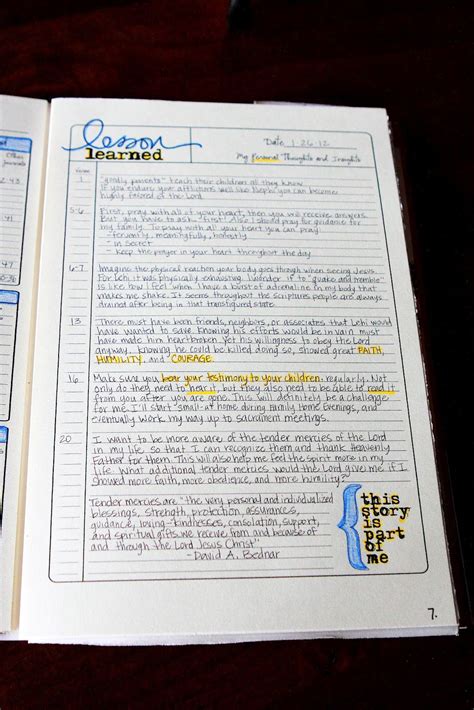 Other
journals
2-43
-45
lesson
learned
Date 1.26.12
My Personal Thoughts and Insights
Verse
1 "goodly parents" teach their children all they know
If you endure your afflictions well like Nephi you can become
highly favored of the Lord.
5-6 First, pray with all of your heart, then you will receive answers.
But, you have to ask "first! Also I should pray for guidance for
my family. To pray with all your heart you can pray:
- fervently, meaningfully, honestly
- in secret
- Keep the prayer in your heart throughout the day
6-7 Imagine the physical reaction your body goes through when seeing Jesus.
For Lehi it was physically exhausting. I wonder if to "quake and tremble"
is like how I feel when I have a burst of adrenaline in my body that
makes me shake. It seems throughout the scriptures people are always
drained after being in that transfigured state.
13 There must have been friends, neighbors, or associates that Lehi would
have wanted to save. Knowing his efforts would be in vain must
have made him heartbroken. Yet his willingness to obey the Lord
anyway, knowing he could be killed doing so, showed great FAITH,
HUMILITY, and COURAGE.
16 Make sure you bear your testimony to your children regularly. Not
only do they need to hear it, but they also need to be able to read it
from you after you are gone. This will definitely be a challenge
for me. I'll start small-at home during Family Home Evenings, and
eventually work my way up to sacrament meetings.
20 I want to be more aware of the tender mercies of the Lord
in my life so that I can recognize them and thank Heavenly
Father for them. This will also help me feel the spirit more in my
life. What additional tender mercies would the Lord give me if I
showed more faith, more obedience, and more humility?
Tender mercies are "the very personal and individualized
blessings, strength, protection, assurances,
guidance, loving-kindnesses, consolation, support,
and spiritual gifts we receive from and because of
and through the Lord Jesus Christ"
- David A. Bednar
this
story
is
part
of
me
7.